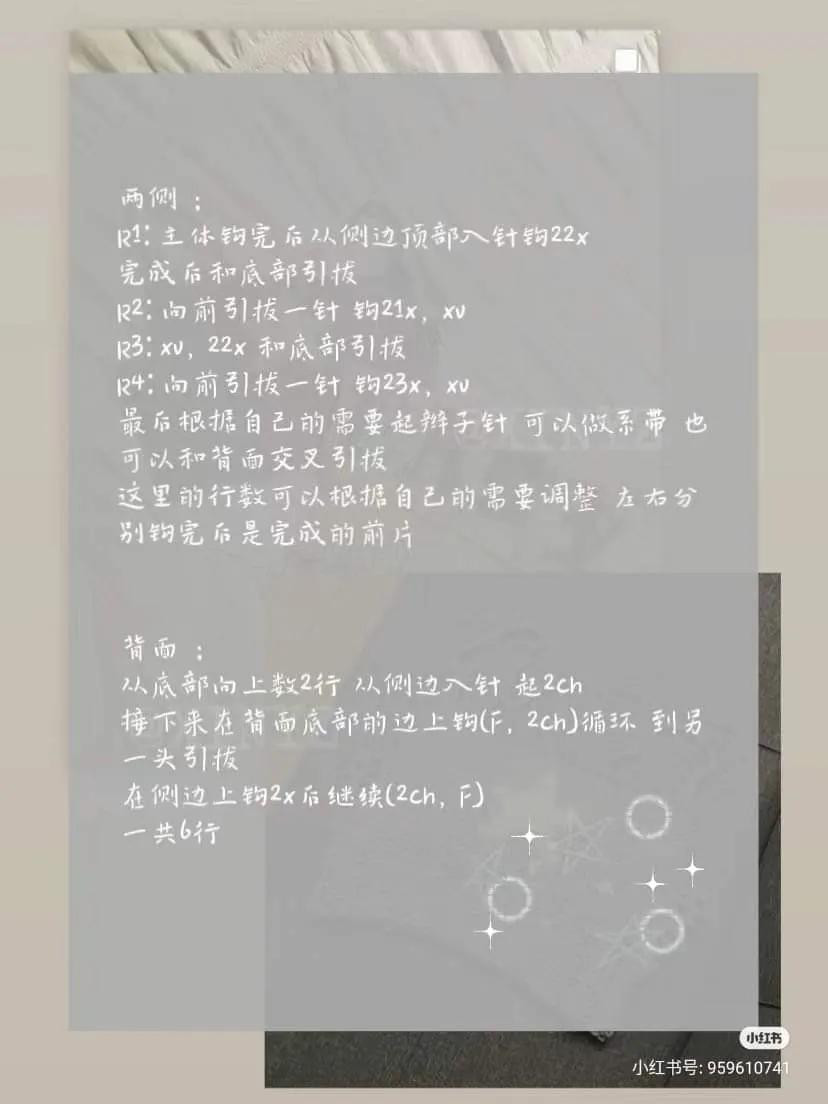 两侧：
R1: 主体钩完后从侧边顶部入针钩22x
完成后和底部引拔
R2: 向前引拔一针 钩21x, xv
R3: xv, 22x 和底部引拔
R4: 向前引拔一针 钩23x, xv
最后根据自己的需要起辫子针 可以做系带 也
可以和背面交叉引拔
这里的行数可以根据自己的需要调整 左右分
别钩完后是完成的前片
背面：
从底部向上数2行 从侧边入针 起2ch
接下来在背面底部的边上钩(F, 2ch)循环 到另
一头引拔
在侧边上钩2x后继续(2ch, F)
一共6行
小红书
小红书号: 959610741